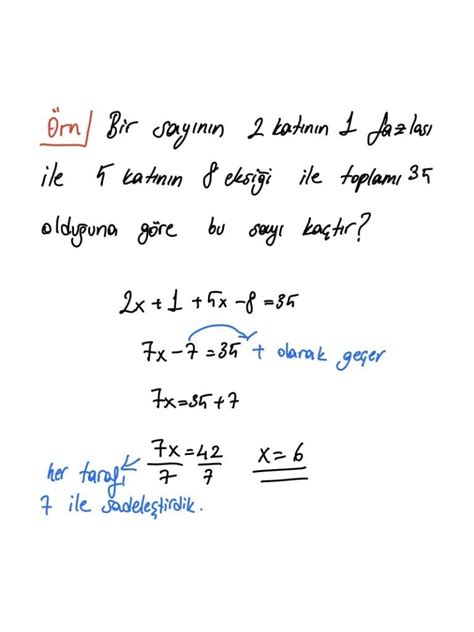 Örn/ Bir sayının 2 katının 1 fazlası
ile 5 katının 8 eksiği ile toplamı 35
olduğuna göre bu sayı kaçtır?
2x+1+5x-8=35
7x-7=35 + olarak geçer
7x=35+7
7x=42 x=6
7 7
her tarafı
7 ile sadeleştirdik.